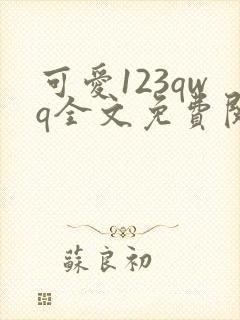 可愛123qw
q全文免費閱
蘇良初